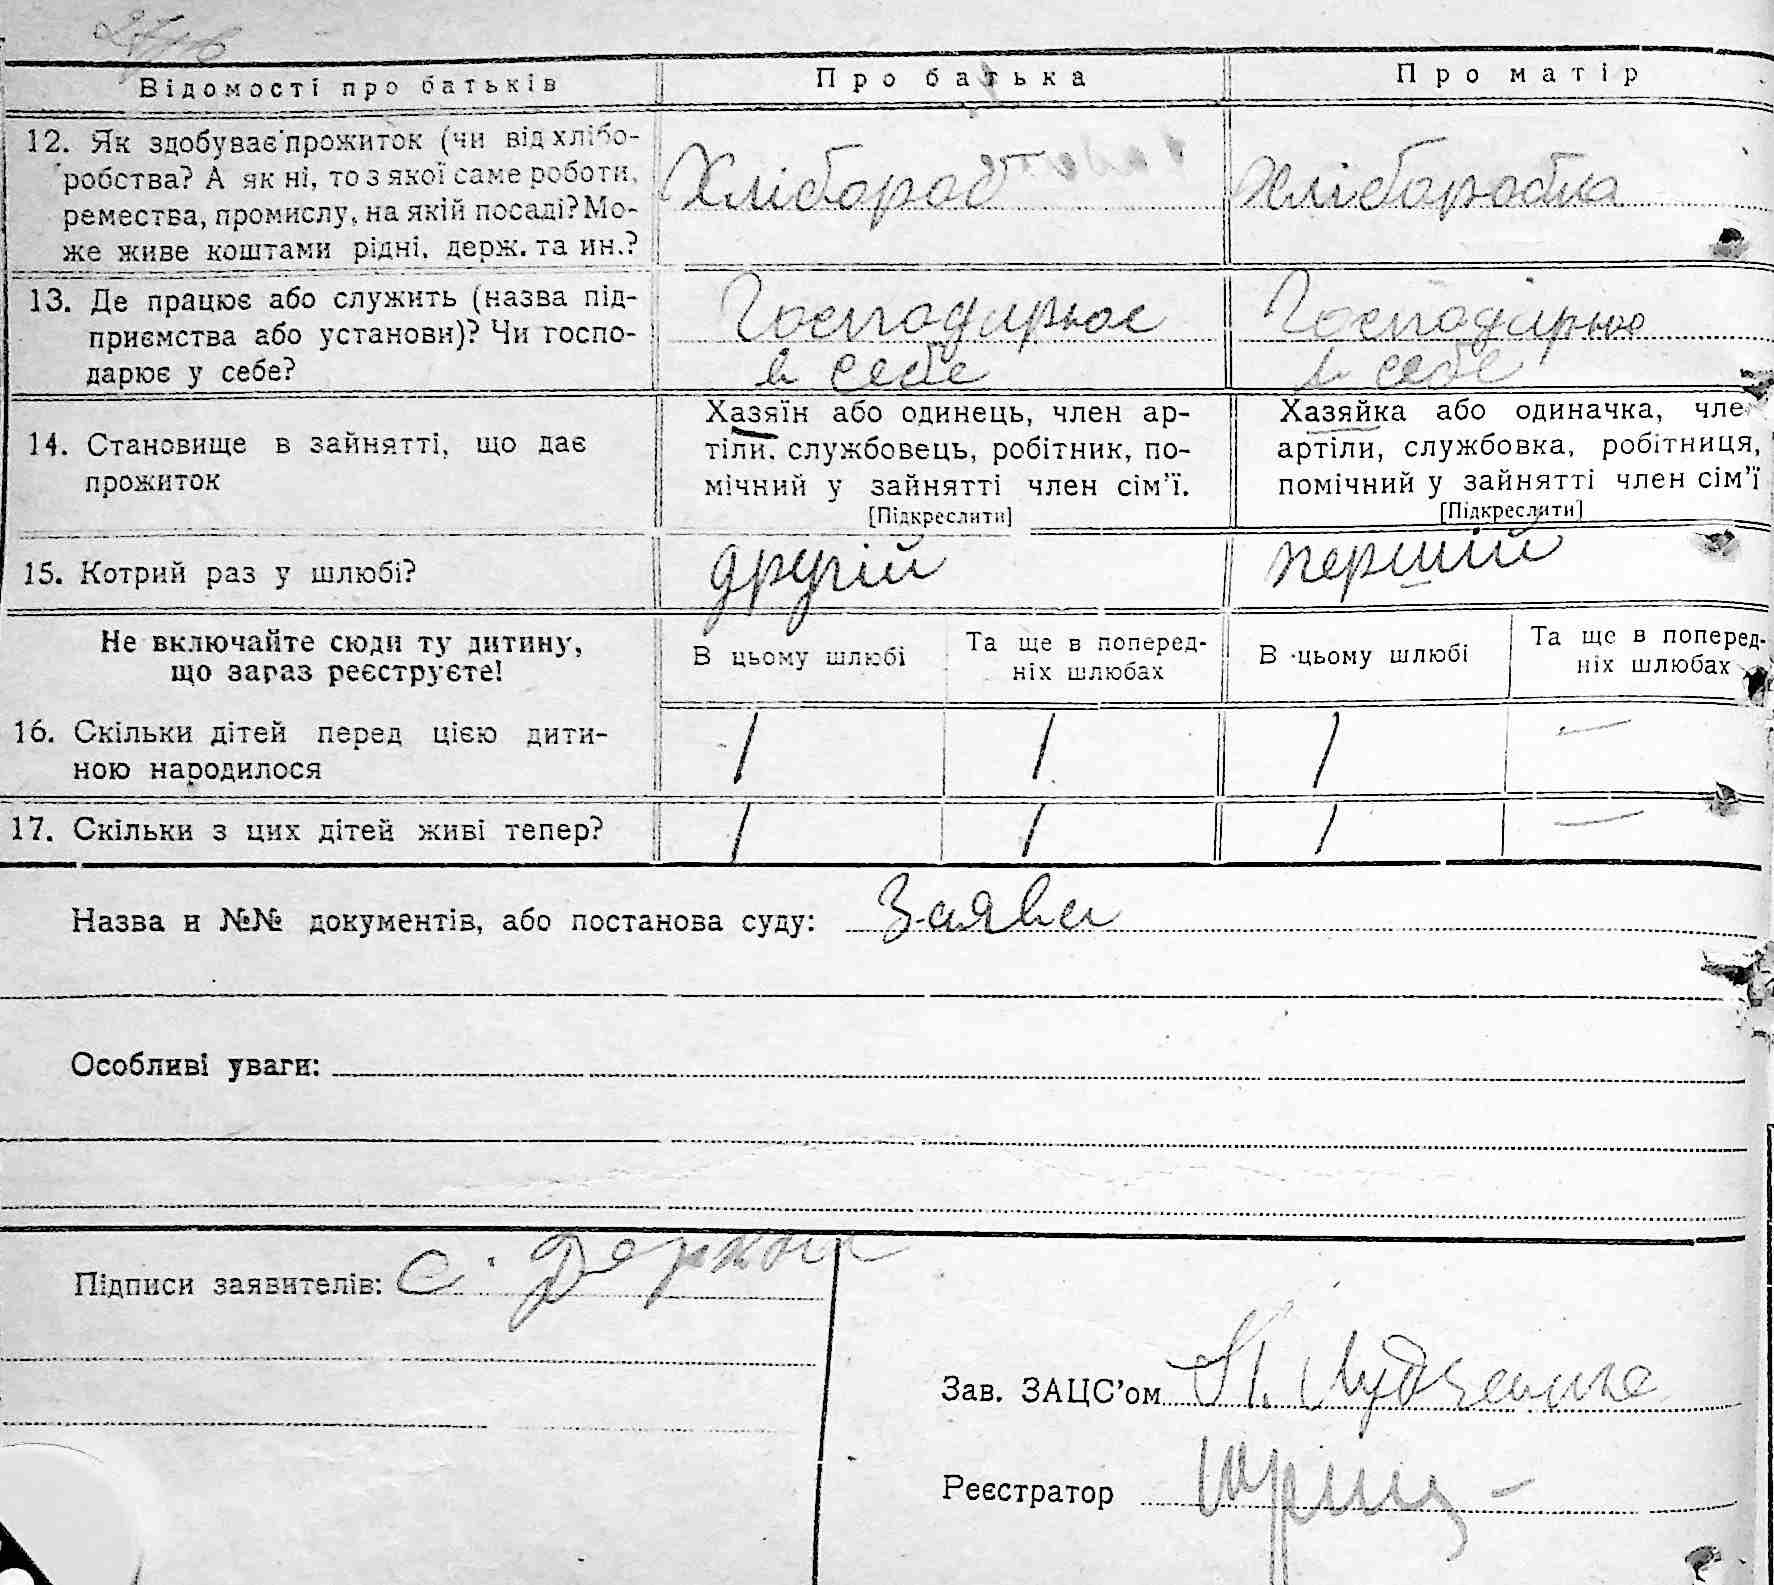 Відомості про батьків
Про батька
Про матір
12. Як здобуває прожиток (чи від хлібо-
робства? А як ні, то з якої саме роботи,
ремества, промислу, на якій посаді? Мо-
же живе коштами рідні, держ. та ин.?
Хлібороб
Хлібаробка
13. Де працює або служить (назва під-
приємства або установи)? Чи госпо-
дарює у себе?
Господирює
в себе
Господирює
в себе
14. Становище в зайнятті, що дає
прожиток
Хазяїн або одинець, член ар-
тіли, службовець, робітник, по-
мічний у зайнятті член сім'ї.
[Підкреслити]
Хазяйка або одиначка, чле
артіли, службовка, робітниця,
помічний у зайнятті член сім'ї
[Підкреслити]
15. Котрий раз у шлюбі?
другій
перший
Не включайте сюди ту дитину,
що зараз реєструєте!
В цьому шлюбі
Та ще в поперед-
ніх шлюбах
В цьому шлюбі
Та ще в поперед-
ніх шлюбах
16. Скільки дітей перед цією дити-
ною народилося
1 1 1 —
17. Скільки з цих дітей живі тепер?
1 1 1 —
Назва и №№ документів, або постанова суду: Заява
Особливі уваги:
Підписи заявителів: С.
Зав. ЗАЦС'ом
Реєстратор